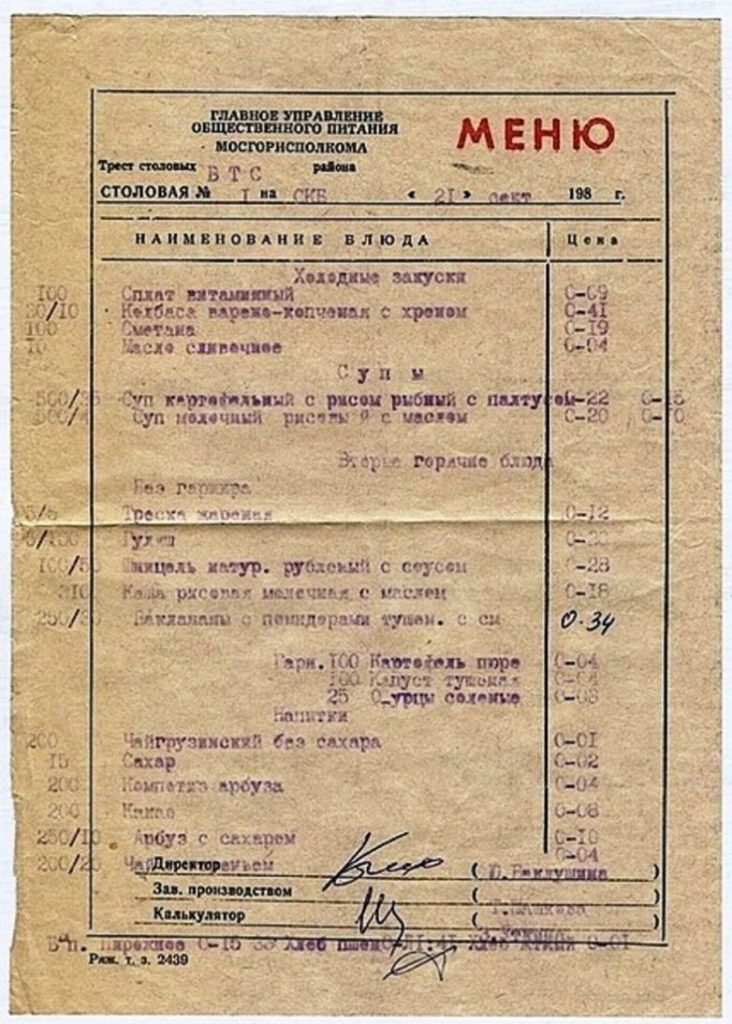 ГЛАВНОЕ УПРАВЛЕНИЕ
ОБЩЕСТВЕННОГО ПИТАНИЯ
МОСГОРИСПОЛКОМА
МЕНЮ
Трест столовых ВТС района
СТОЛОВАЯ № I на СКБ « 2I » сент 198 г.
НАИМЕНОВАНИЕ БЛЮДА Цена
Холодные закуски
I00 витаминный 0-09
/I0 Колбаса варено-копченая с хреном 0-4I
I00 Сметана 0-I9
I0 Масло сливочное 0-04
Супы
500/ Суп картофельный с рисом рыбный с палтусом 0-22
500/ Суп молочный рисовый с маслом 0-20 0-
Вторые горячие блюда
Без гарнира
Треска жареная 0-I2
Гуляш
I00/50 Шницель натур. рубленый с соусом 0-28
3I0 Каша рисовая молочная с маслом 0-I8
250/ Баклажаны с помидорами тушен. с см 0-34
Гарн. I00 Картофель пюре 0-04
I00 Капуст тушеная
25 О_урцы соленые 0-03
Напитки
200 Чайгрузинский без сахара 0-0I
I5 Сахар 0-02
200 арбуза 0-04
200 Какао 0-08
250/I0 Арбуз с сахарем 0-I0
200/ Чай 0-04
Директор (Ю.Баклушина)
Зав. производством ( )
Калькулятор (Т. )
0-I5 Хлеб 0-0I
Ряж. т. з. 2439